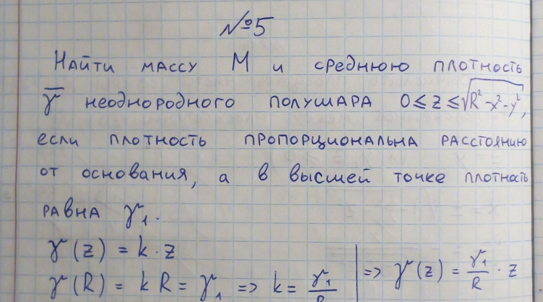 №5
Найти массу M и среднюю плотность
γ̅ неоднородного полушара 0 ≤ z ≤ √(R²-x²-y²),
если плотность пропорциональна расстоянию
от основания, а в высшей точке плотность
равна γ₁.
γ(z) = k · z
γ(R) = k R = γ₁ => k = γ₁/R | => γ(z) = γ₁/R · z